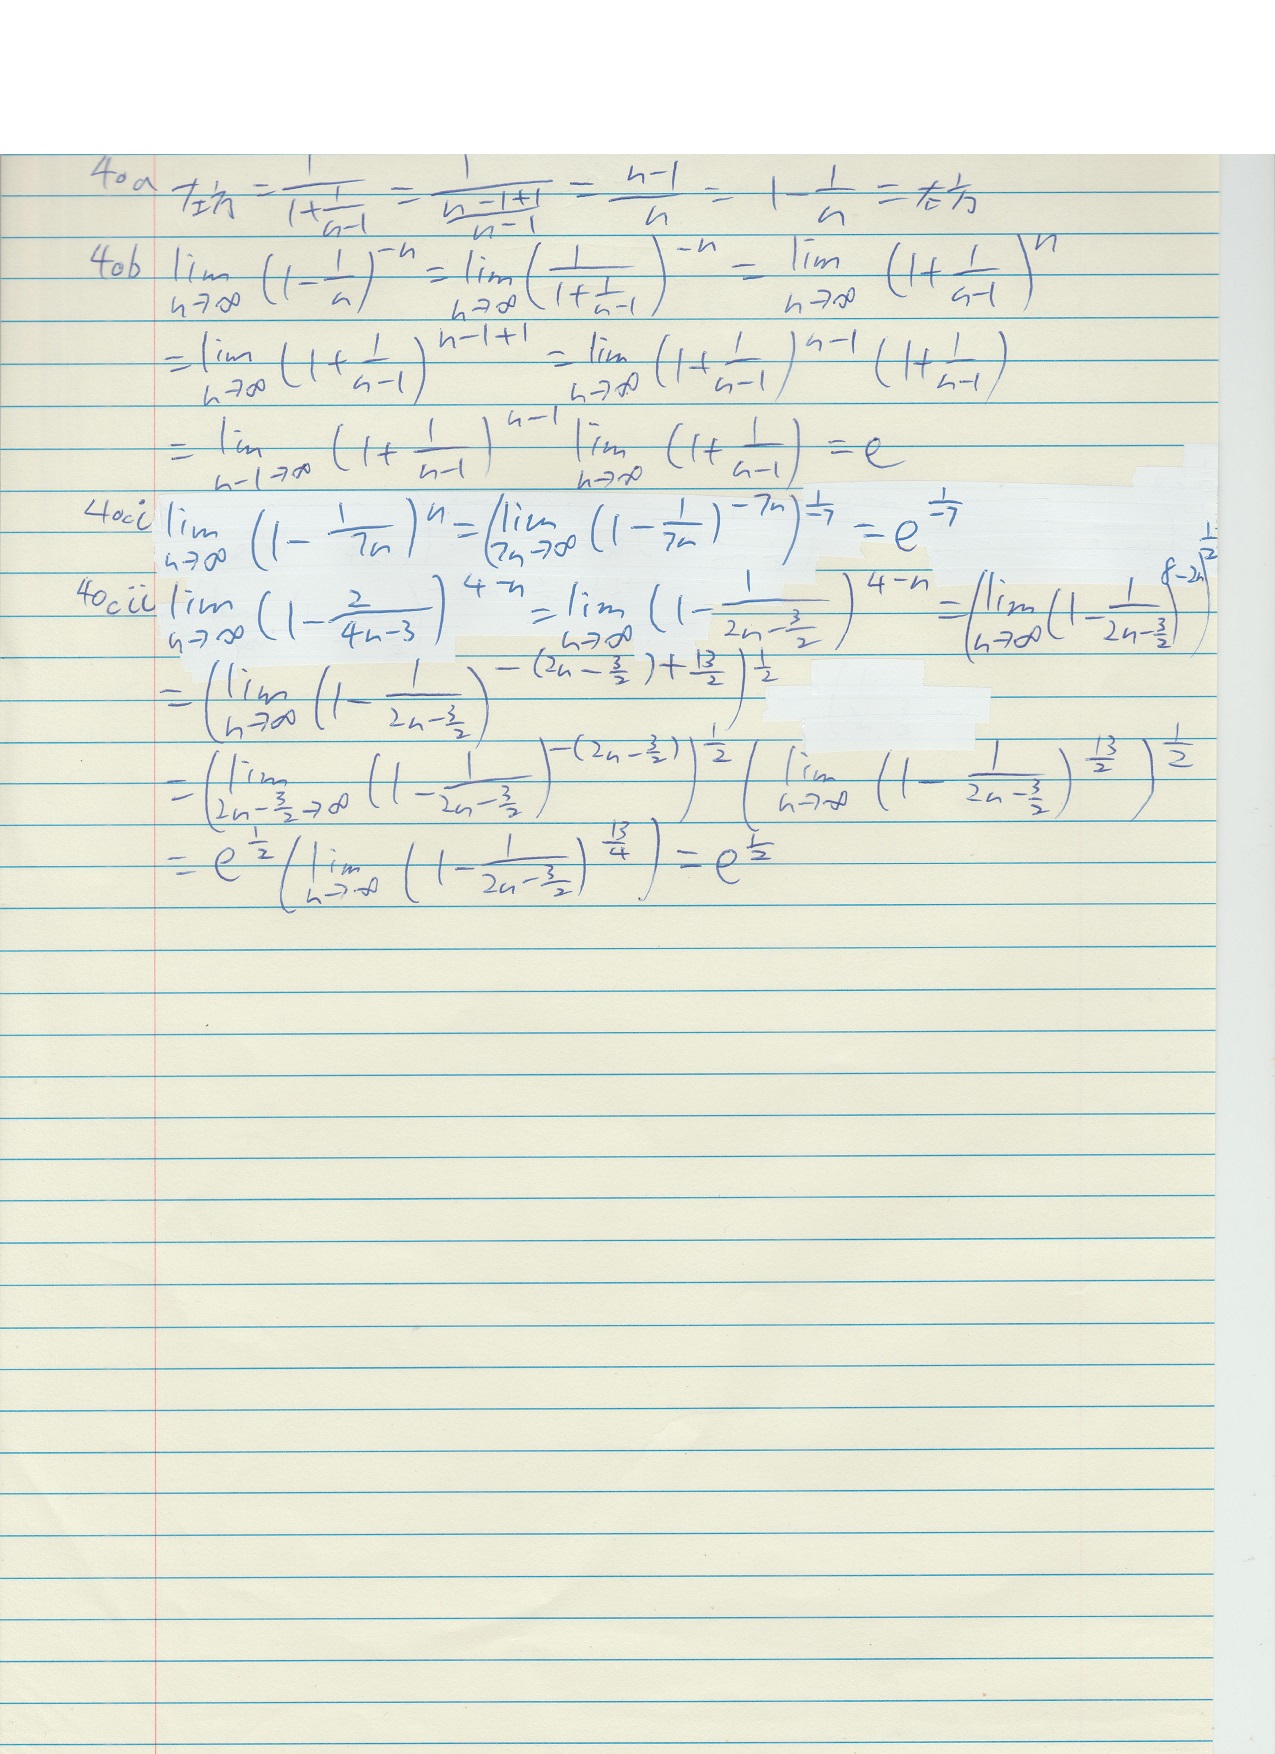 40a 右边 = \frac{1}{1+\frac{1}{n-1}} = \frac{1}{\frac{n-1+1}{n-1}} = \frac{n-1}{n} = 1-\frac{1}{n} = 左边
40b \lim_{n→∞} (1-\frac{1}{n})^{-n} = \lim_{n→∞} (\frac{1}{1+\frac{1}{n-1}})^{-n} = \lim_{n→∞} (1+\frac{1}{n-1})^{n}
= \lim_{n→∞} (1+\frac{1}{n-1})^{n-1+1} = \lim_{n→∞} (1+\frac{1}{n-1})^{n-1} (1+\frac{1}{n-1})
= \lim_{n-1→∞} (1+\frac{1}{n-1})^{n-1} \lim_{n→∞} (1+\frac{1}{n-1}) = e
40ci \lim_{n→∞} (1-\frac{1}{7n})^{n} = (\lim_{7n→∞} (1-\frac{1}{7n})^{-7n})^{\frac{1}{-7}} = e^{\frac{1}{-7}}
40cii \lim_{n→∞} (1-\frac{2}{4n-3})^{4-n} = \lim_{n→∞} (1-\frac{1}{2n-\frac{3}{2}})^{4-n} = (\lim_{n→∞} (1-\frac{1}{2n-\frac{3}{2}})^{8-2n})^{\frac{1}{2}}
= (\lim_{n→∞} (1-\frac{1}{2n-\frac{3}{2}})^{-(2n-\frac{3}{2})+\frac{13}{2}})^{\frac{1}{2}}
= (\lim_{2n-\frac{3}{2}→∞} (1-\frac{1}{2n-\frac{3}{2}})^{-(2n-\frac{3}{2})})^{\frac{1}{2}} (\lim_{n→∞} (1-\frac{1}{2n-\frac{3}{2}})^{\frac{13}{2}})^{\frac{1}{2}}
= e^{\frac{1}{2}} (\lim_{n→∞} (1-\frac{1}{2n-\frac{3}{2}})^{\frac{13}{4}}) = e^{\frac{1}{2}}